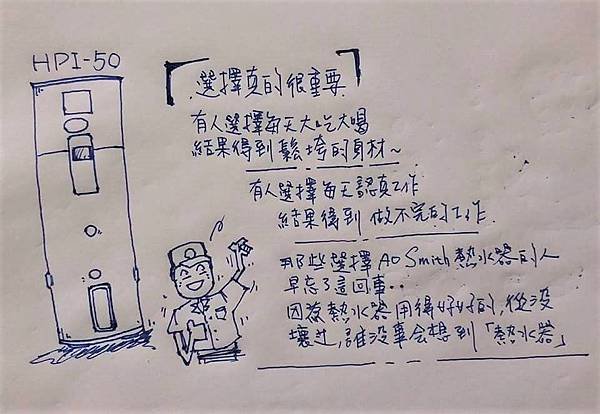 HPI-50
「選擇真的很重要」
有人選擇每天大吃大喝
結果得到鬆垮的身材~
有人選擇每天認真工作
結果得到 做不完的工作.
那些選擇 AO Smith 熱水器的人
早忘了這回事..
因為熱水器 用得好好的, 從沒
壞过, 誰沒事会想到「熱水器」